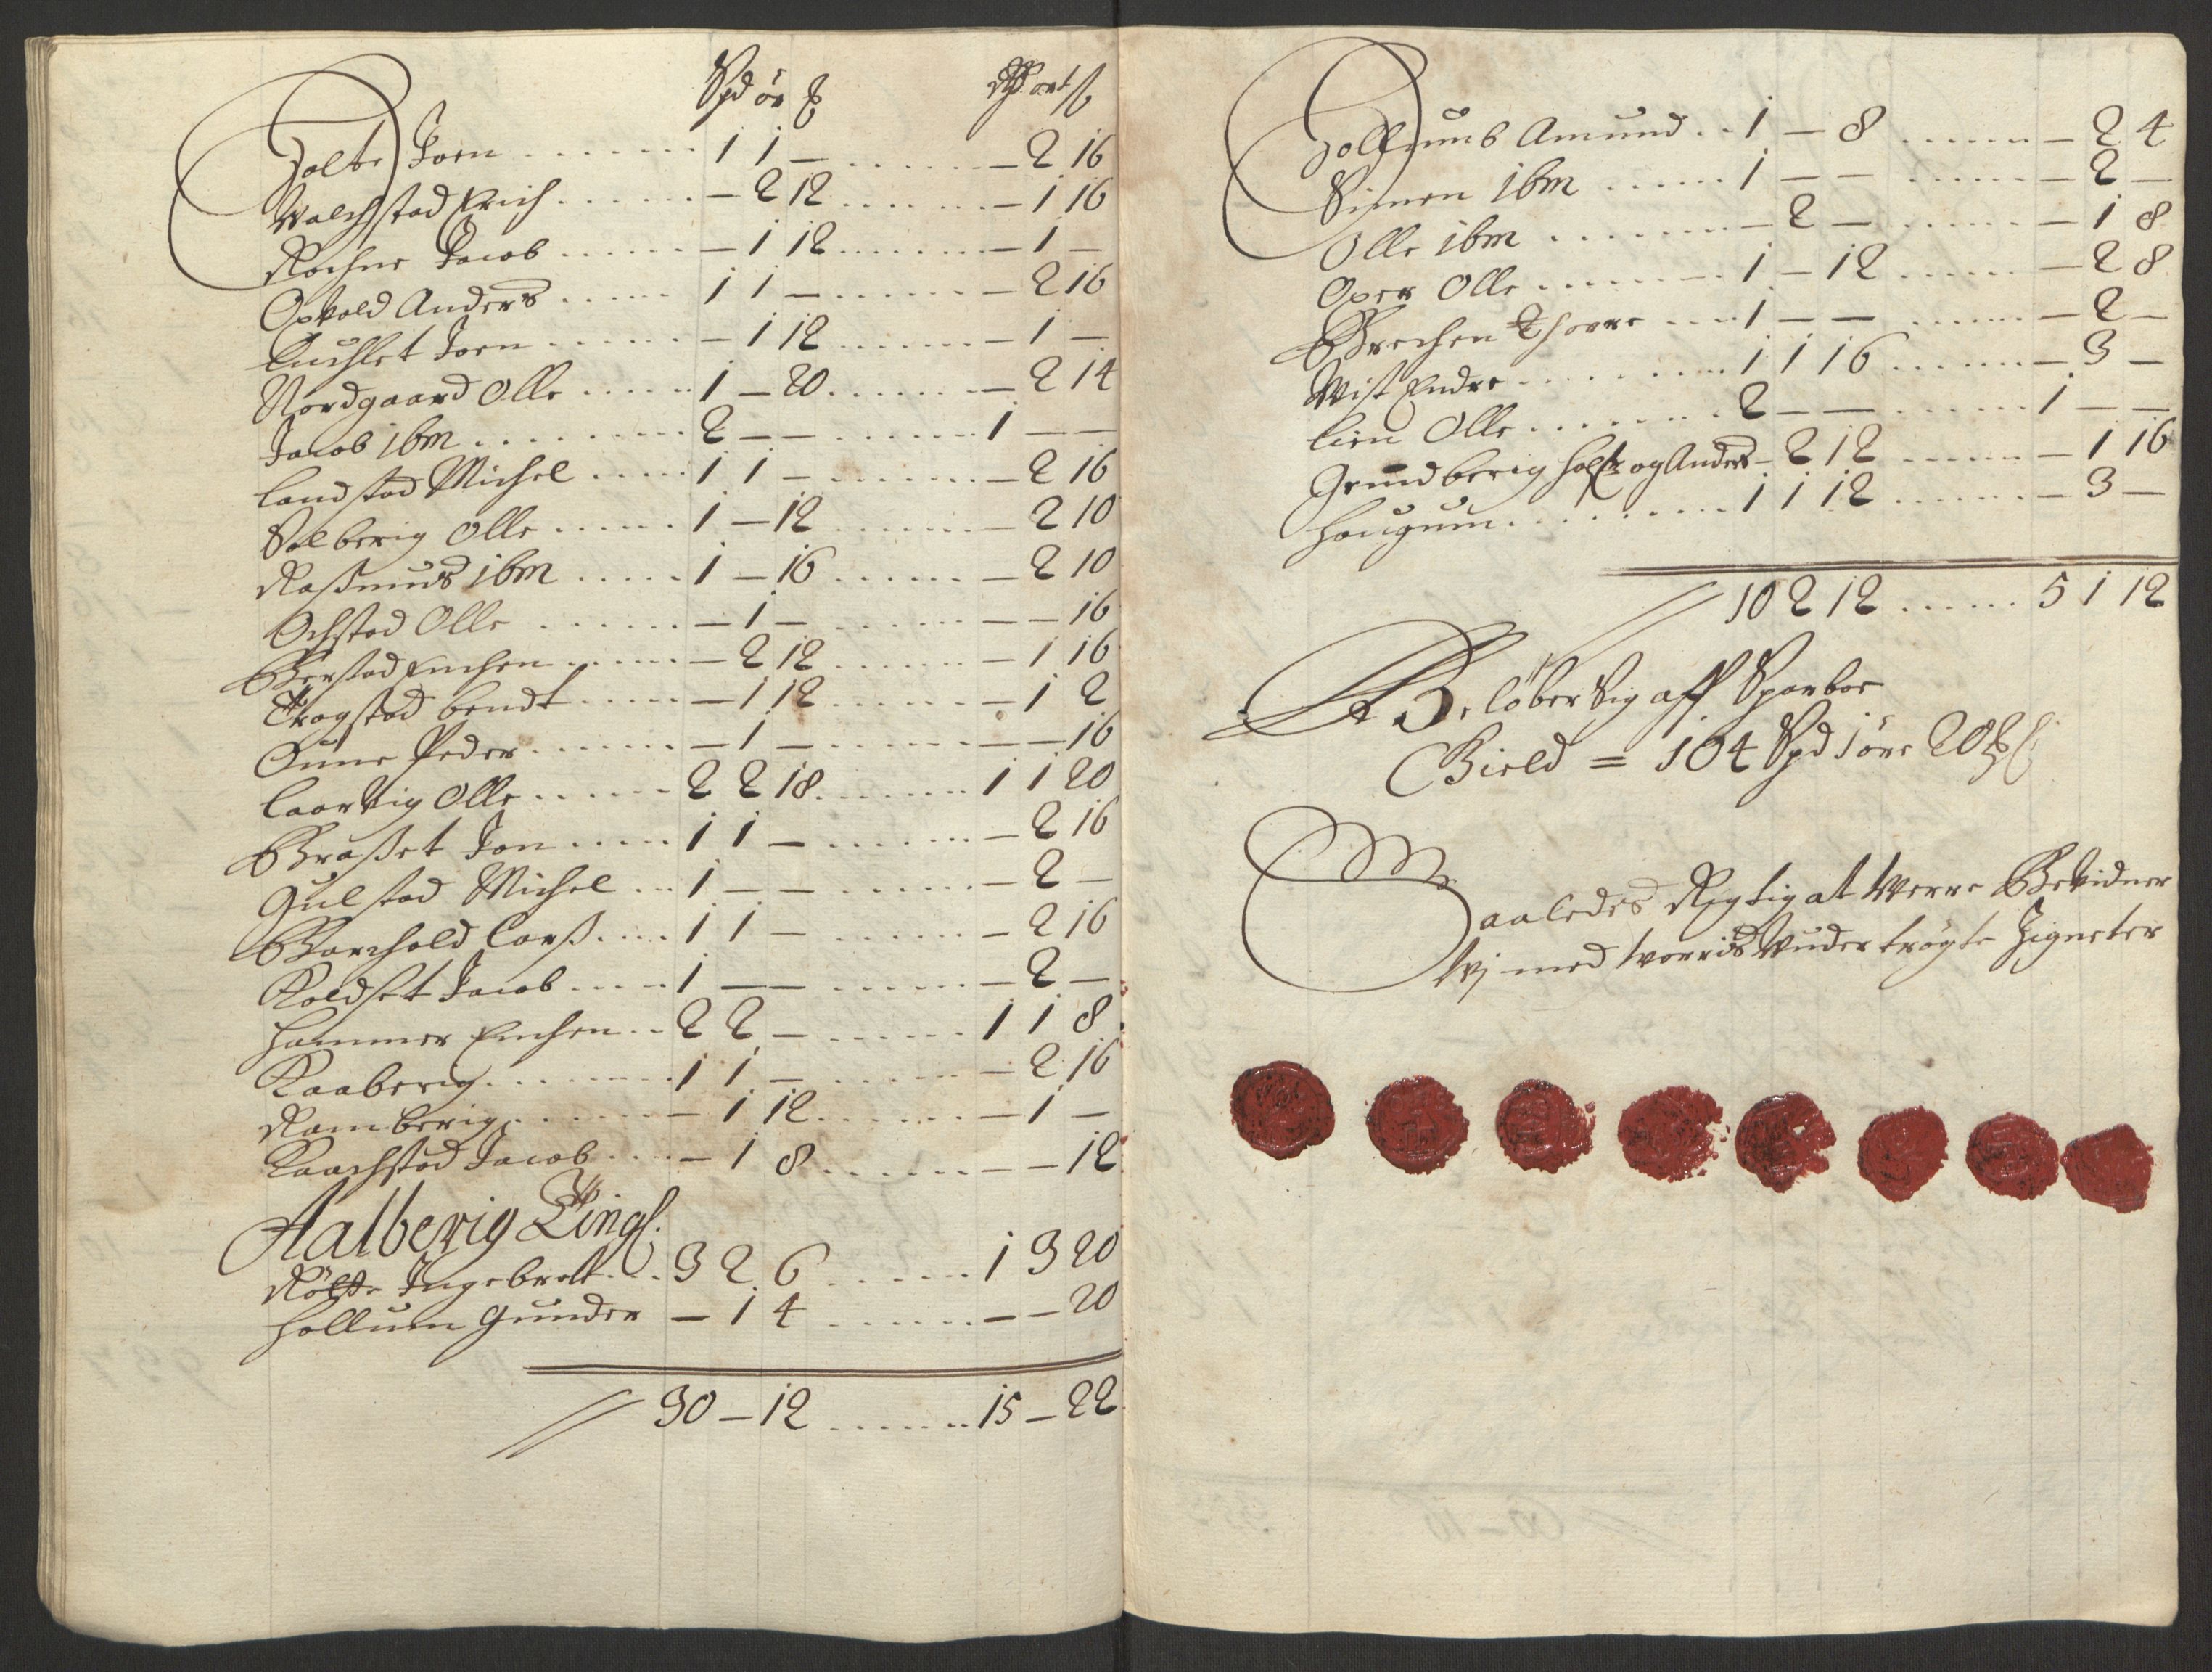 Spd ör
Holte Joen . . . . 1 1 — . . . . — 2 16
Walchstad Erich . . . . — 2 12 . . . . — 1 16
Rochne Jacob . . . . — 1 12 . . . . — 1 —
Opvold Anders . . . . 1 1 — . . . . — 2 16
Joen . . . . — 1 12 . . . . — 1 —
Nordgaard Olle . . . . 1 — 20 . . . . — 2 14
Jacob ibm . . . . 2 — — . . . . 1 — —
Landstad Michel . . . . 1 1 — . . . . — 2 16
Solberig Olle . . . . 1 — 12 . . . . — 2 10
Raßmus ibm . . . . 1 — 16 . . . . — 2 10
Ochstad Olle . . . . — 1 — . . . . — — 16
Berstad Enchen . . . . — 2 12 . . . . — 1 16
Tragstad bendt . . . . — 1 12 . . . . — 1 2
Oune Peder . . . . — 1 — . . . . — — 16
Laarvig Olle . . . . 2 2 18 . . . . 1 1 20
Braßet Jon . . . . 1 1 — . . . . — 2 16
Gulstad Michel . . . 1 — — . . . . — 2 —
Borchold Larß . . . . 1 1 — . . . . — 2 16
Koldset Jacob . . . . 1 — — . . . . — 2 —
Hammer Enchen . . 2 2 — . . . . 1 1 8
Kaaberig . . . . 1 1 — . . . . — 2 16
Ramberig . . . . — 1 12 . . . . — 1 —
Kaachstad Jacob . . . . — 1 8 . . . . — — 12
Aalberig Tingl.
Rölte Ingebret . . . 3 2 6 . . . . 1 3 20
Hollum Gunder — 1 4 . . . . — — 20
30 — 12 . . . . 15 — 22
Hollumb Amund . . 1 — 8 . . . . — 2 4
Simen ibm . . . . 1 — — . . . . — 2 —
Olle ibm . . . . — 2 — . . . . — 1 8
Oxer Olle . . . . 1 — 12 . . . . — 2 8
Brechen Thorre . . . 1 — — . . . . — 2 —
Wist Endre . . . . 1 1 16 . . . . — 3 —
Lien Olle . . . . 2 — — . . . . 1 — —
Grundberig og Anders — 2 12 . . . . — 1 16
Hougum . . . . 1 1 12 . . . . — 3 —
10 2 12 . . . . 5 1 12
Beløber Sig aff Sparboe
Gield = 104 Spd 1 öre 20
Saaledes Rigtig at Werre Bekidner
Wj med worris Wnder trøgte Zigneter